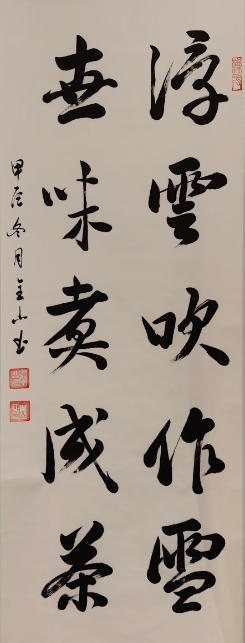 浮雲吹作雪
世味煮成茶
甲辰冬月金山书